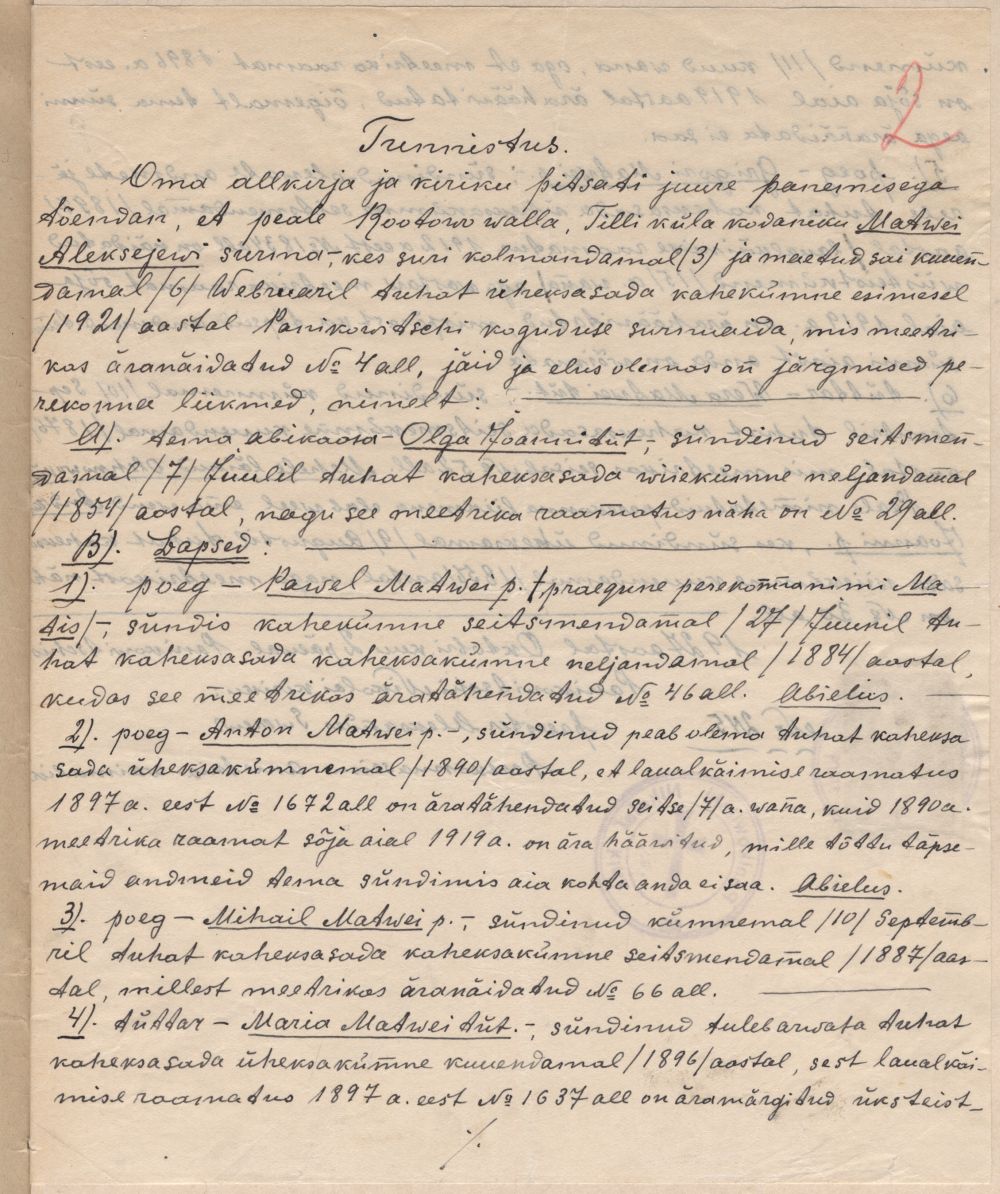 2
Tunnistus.
Oma allkirja ja kiriku pitsati juure panemisega
tõendan, et peale Rootowo walla, Tilli küla kodaniku Matwei
Aleksejewi surma-, kes suri kolmandamal /3/ ja maetud sai kuuen-
damal /6/ Webruaril tuhat üheksasada kahekümne esimesel
/1921/ aastal Panikowitschi koguduse surnuaida, mis meetri-
kas äranäidatud № 4 all, jäid ja elus olemas on järgmised pe-
rekonna liikmed, nimelt:
A). tema abikaasa - Olga Joanni tüt-, sündinud seitsmen-
damal /7/ Juulil tuhat kaheksasada wiiekümne neljandamal
/1854/ aastal, nagu see meetrika raamatus näha on № 29 all.
B). Lapsed:
1). poeg - Pawel Matwei p. /praegune perekonnanimi Ma
tis/-, sündis kahekümne seitsmendamal /27/ Juunil tu-
hat kaheksasada kaheksakümne neljandamal /1884/ aastal,
kudas see meetrikas äratähendatud № 46 all. Abielus.
2). poeg - Anton Matwei p. -, sündinud peab olema tuhat kaheksa
sada üheksakümnemal /1890/ aastal, et laualkäimise raamatus
1897 a. eest № 1672 all on äratähendatud seitse /7/ a. wana, kuid 1890 a.
meetrika raamat sõja aial 1919 a. on ära hääwitud, mille tõttu täpse-
maid andmeid tema sündimis aia kohta anda ei saa. Abielus.
3). poeg - Mihail Matwei p. -, sündinud kümnemal /10/ Septemb-
ril tuhat kaheksasada kaheksakümne seitsmendamal /1887/ aas-
tal, millest meetrikas äranäidatud № 66 all.
4). tüttar - Maria Matwei tüt. -, sündinud tuleb arwata tuhat
kaheksasada üheksakümne kuuendamal /1896/ aastal, sest laualkäi-
mise raamatus 1897 a. eest № 1637 all on äramärgitud üksteist-
./.